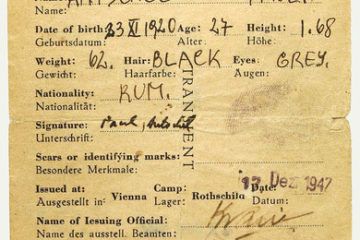 Name:
Date of birth: 23 XI 1920 Age: 27 Height: 1.68
Geburtsdatum: Alter: Höhe:
Weight: 62. Hair: BLACK Eyes: GREY.
Gewicht: Haarfarbe: Augen:
Nationality: RUM.
Nationalität:
TRANSIENT
Signature: Paul
Unterschrift:
Scars or identifying marks:
Besondere Merkmale:
Issued at: Vienna Camp: Rothschild Date: 17 Dez 1947
Ausgestellt in Lager: Datum:
Name of Iesuing Official:
Name des ausstell. Beamten: